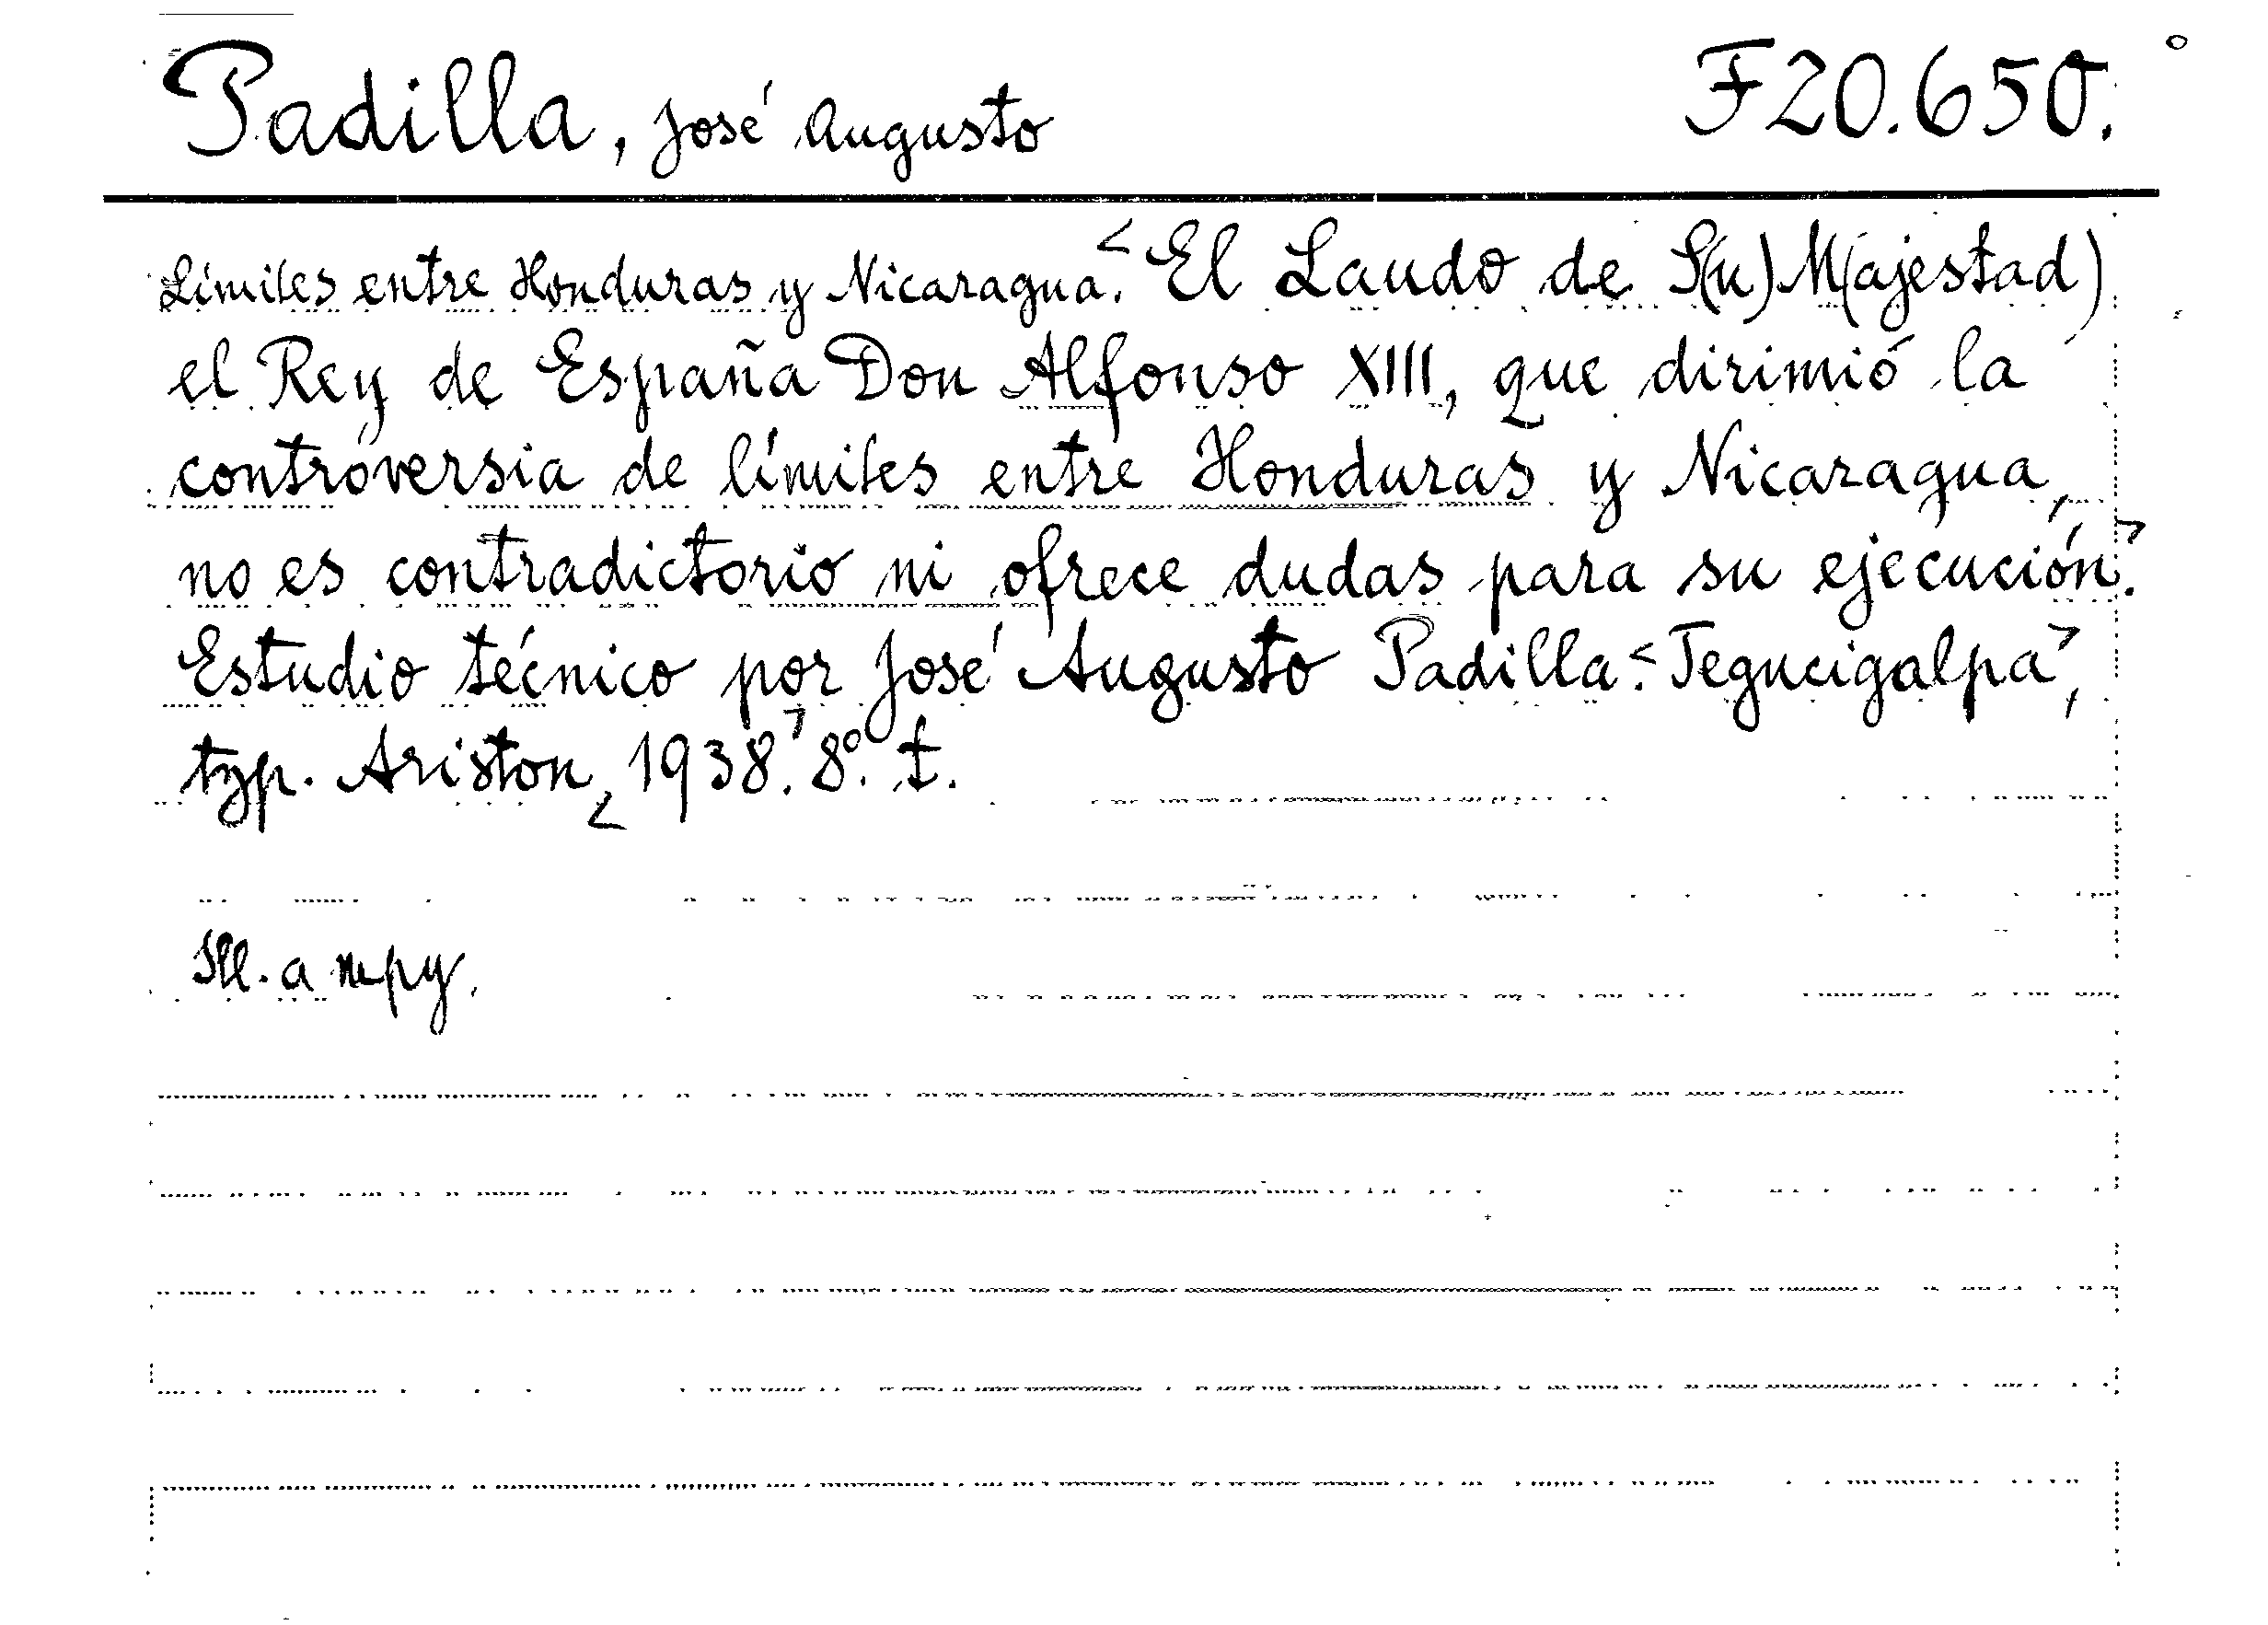 Padilla, José Augusto F20.650.
Límites entre Honduras y Nicaragua. < El Laudo de S(u) M(ajestad)
el Rey de España Don Alfonso XIII, que dirimió la
controversia de límites entre Honduras y Nicaragua,
no es contradictorio ni ofrece dudas para su ejecución. >
Estudio técnico por José Augusto Padilla. < Tegucigalpa >,
typ. Ariston, < 1938. > 8º. t.
Ill. a mpy.